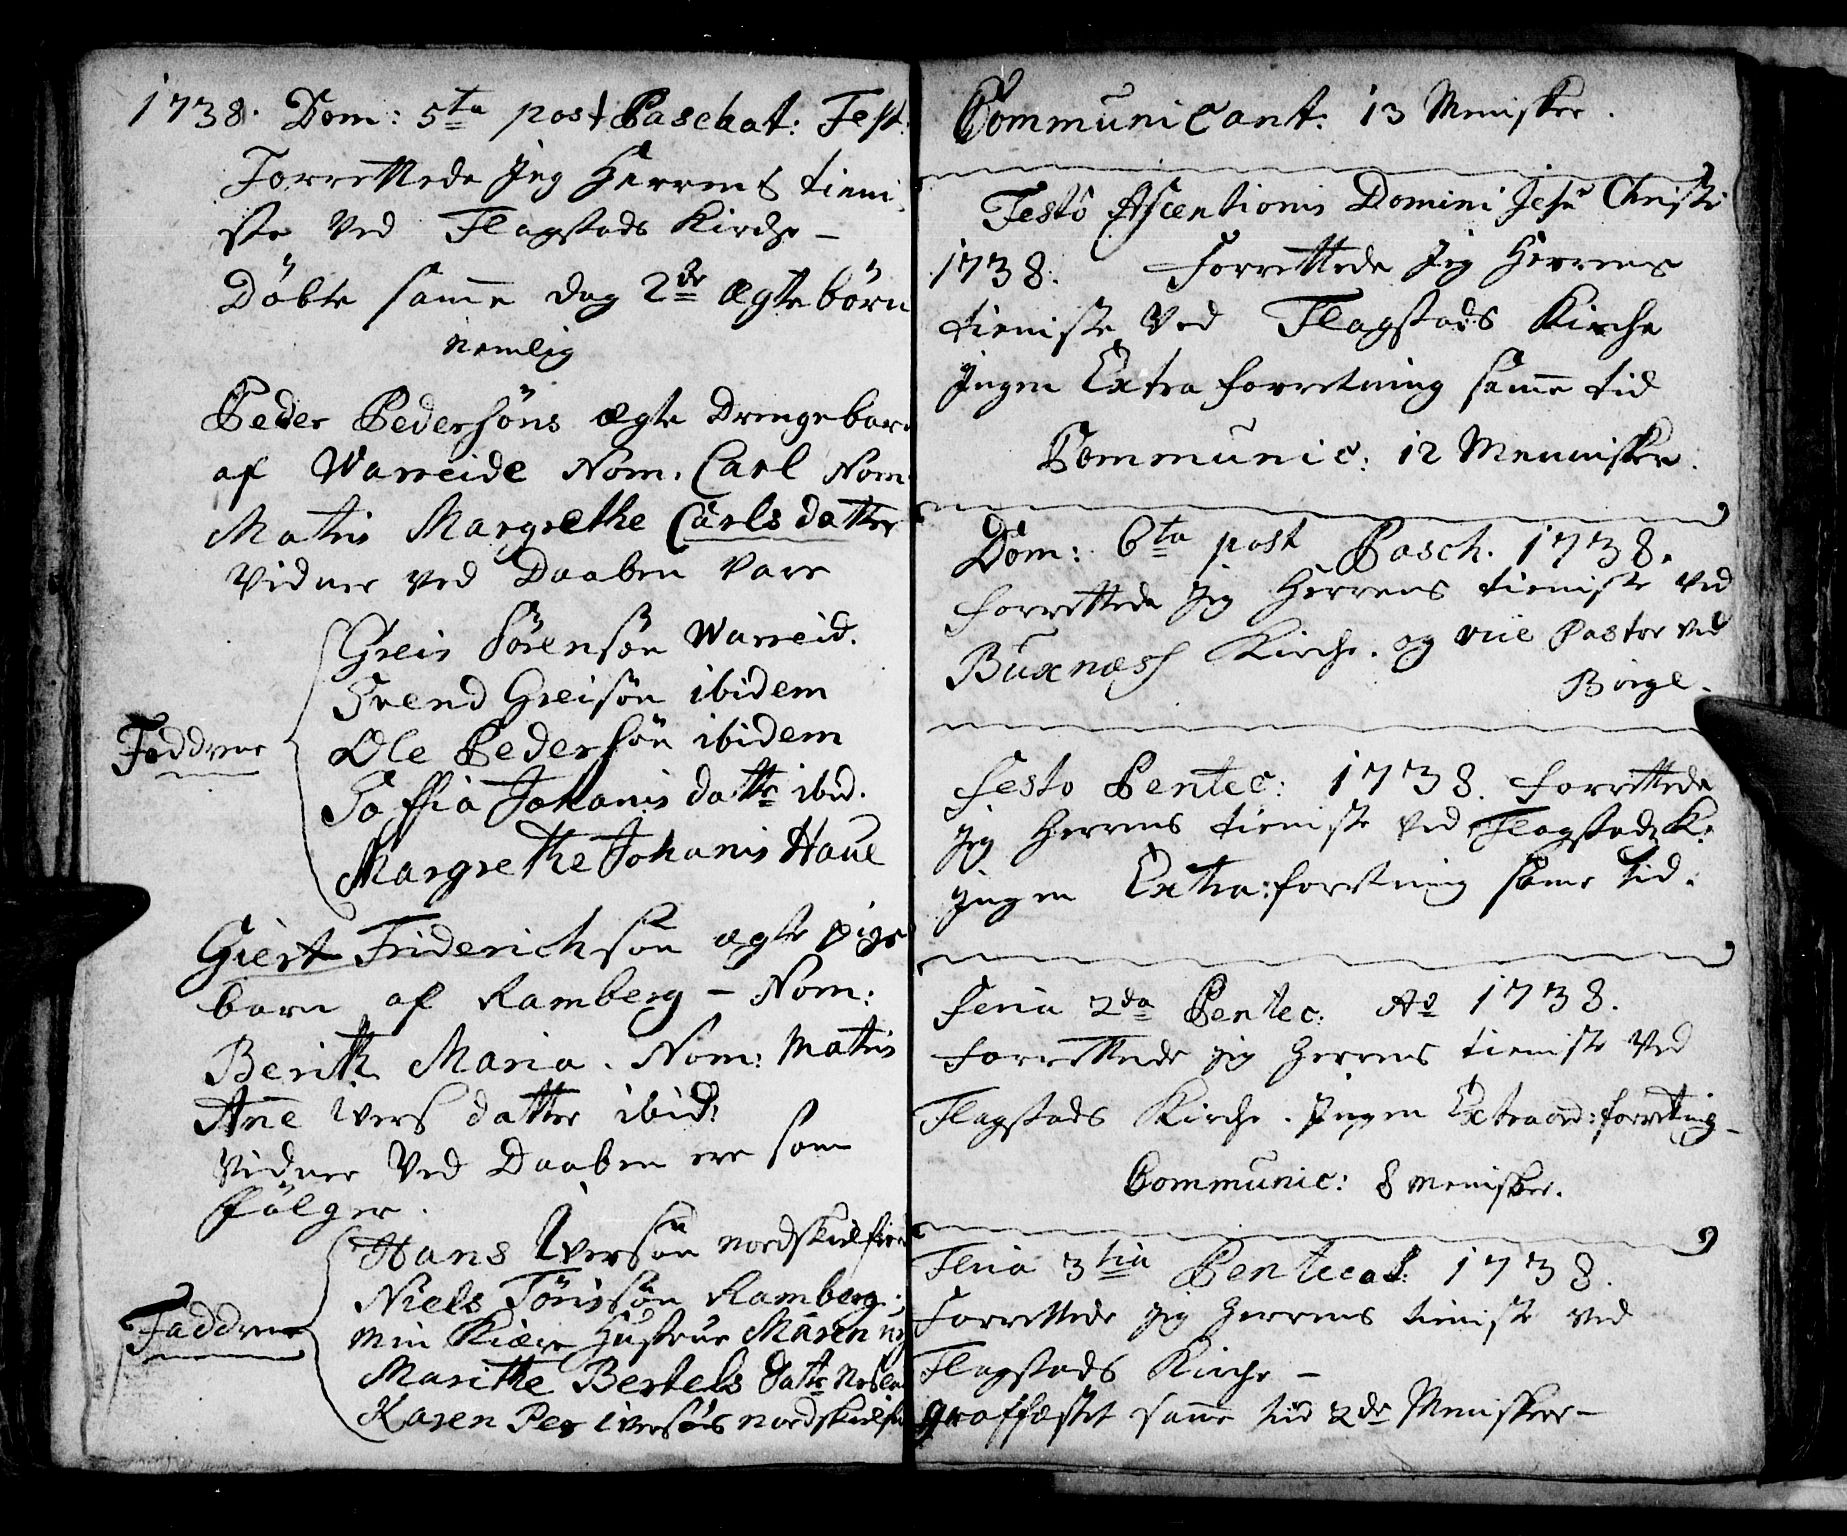 1738. Dom: 5ta post Paschat: Fest:
Forrettede Jeg Herrens tieni,
ste Ved Flagstads Kirche –
Döbte samme dag 2de ægte börn
nemlig
Peder Pedersöns ægte Drengebarn
af Warreide Nom. Carl Nom:
Matris Margrethe Carls datter
Vidner ved Daaben vare
Greis Sörensön Warreid.
Svend Greisön ibidem
Faddrene
Ole Pedersön ibidem
Saffia Johanis dattr ibid.
Margrethe Johanis Haue
Giert Friderichsön ægte pige
barn af Ramberg – Nom:
Berith Maria. Nom: Matris
Anne Ivers datter ibid:
Vidner Ved Daaben ere som
fölger.
Hans Iversön nordskielfiord
Niels Tönissön Ramberg:
Faddrene
min Kiære Hustrue Maren
Marithe Bertels dattr
Karen Per Iversöns nordskielf
Communicant: 13 Menisker.
Festo Ascentionis Domini Jesu Christi
1738. Forrettede Jeg Herrens
tieniste Ved Flagstads Kirche
Ingen Extra forretning samme tid
Communic: 12 Mennisker.
Dom: 6ta post Pasch. 1738.
forrettede Jeg Herrens tieniste ved
Buxnæss Kirche. og Pastor ved
Börge.
Festo Pentec: 1738. forrettede
Jeg Herrens tieniste ved Flagstads K:
Ingen Extra: forretning same tid.
Feria 2da Pentec: Ao 1738.
Forrettede jeg Herrens tieniste Ved
Flagstads Kirche. Ingen Extraord: forretning –
Communic: 8 menisker.
Feria 3tia Pentecost: 1738.
Forrettede jeg Herrens tieniste ved
Flagstads Kirche –
graffæstet samme tid 2de Menisker –